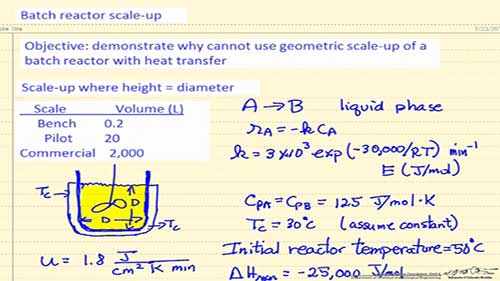 Batch reactor scale-up
Objective: demonstrate why cannot use geometric scale-up of a
batch reactor with heat transfer
Scale-up where height = diameter
Scale Volume (L)
Bench 0.2
Pilot 20
Commercial 2,000
Tc
D
D
Tc
U = 1.8 J / cm² K min
A → B liquid phase
rA = -k CA
k = 3×10³ exp(-30,000/RT) min⁻¹
E (J/mol)
CPA = CPB = 125 J/mol·K
Tc = 30°C (assume constant)
Initial reactor temperature = 50°C
ΔHrxn = -25,000 J/mol